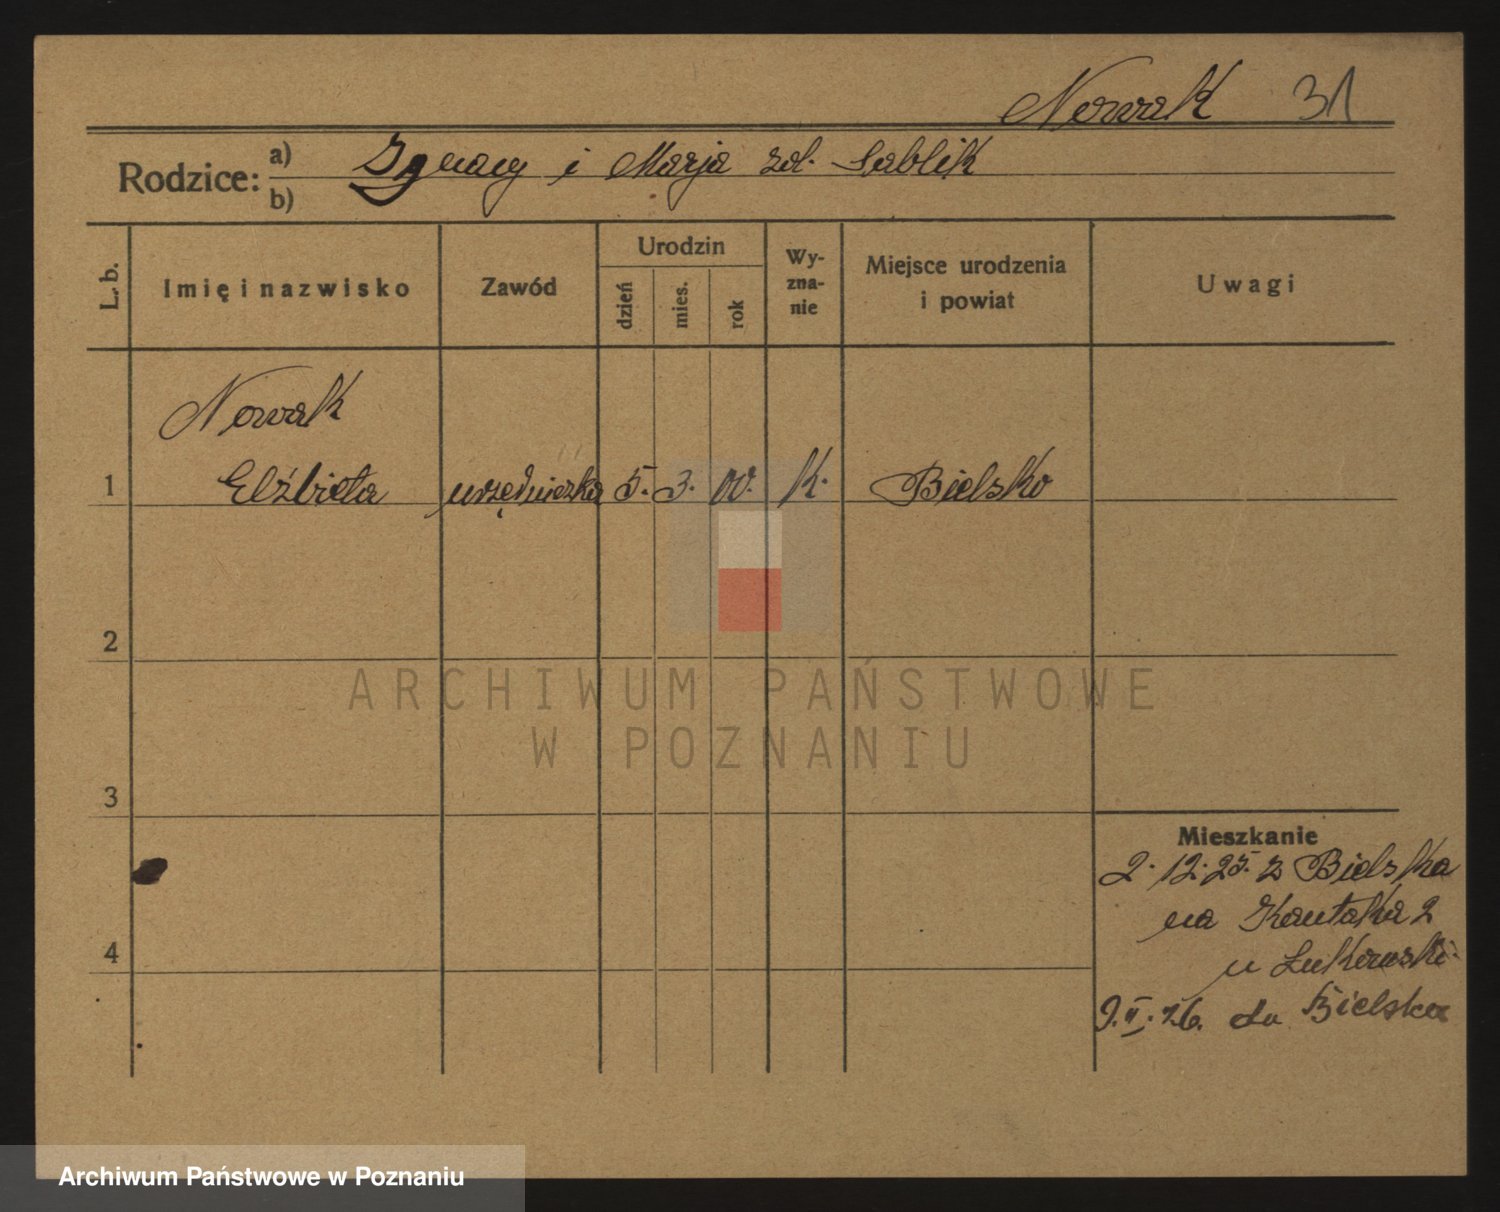 Nowak 31
Rodzice: a) Ignacy i Marja zd. Sablik
b)
L. b.
Imię i nazwisko
Zawód
Urodzin
dzień
mies.
rok
Wy-
zna-
nie
Miejsce urodzenia
i powiat
Uwagi
Nowak
1 Elżbieta urzędniczka 5. 3. 00. k. Bielsko
2
ARCHIWUM PAŃSTWOWE
W POZNANIU
3
Mieszkanie
2. 12. 25. z Bielska
na Kantaka 2
4
u
9. II. 26. do Bielska
Archiwum Państwowe w Poznaniu